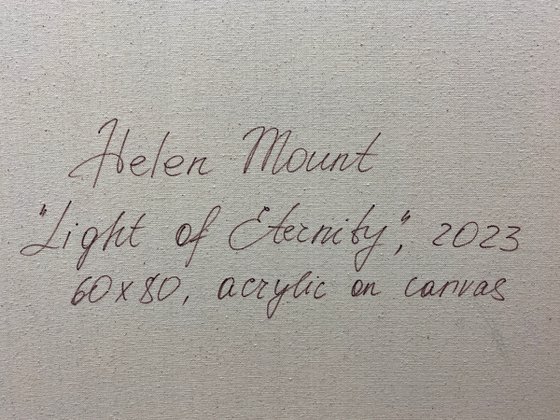 Helen Mount
"Light of Eternity", 2023
60x80, acrylic on canvas